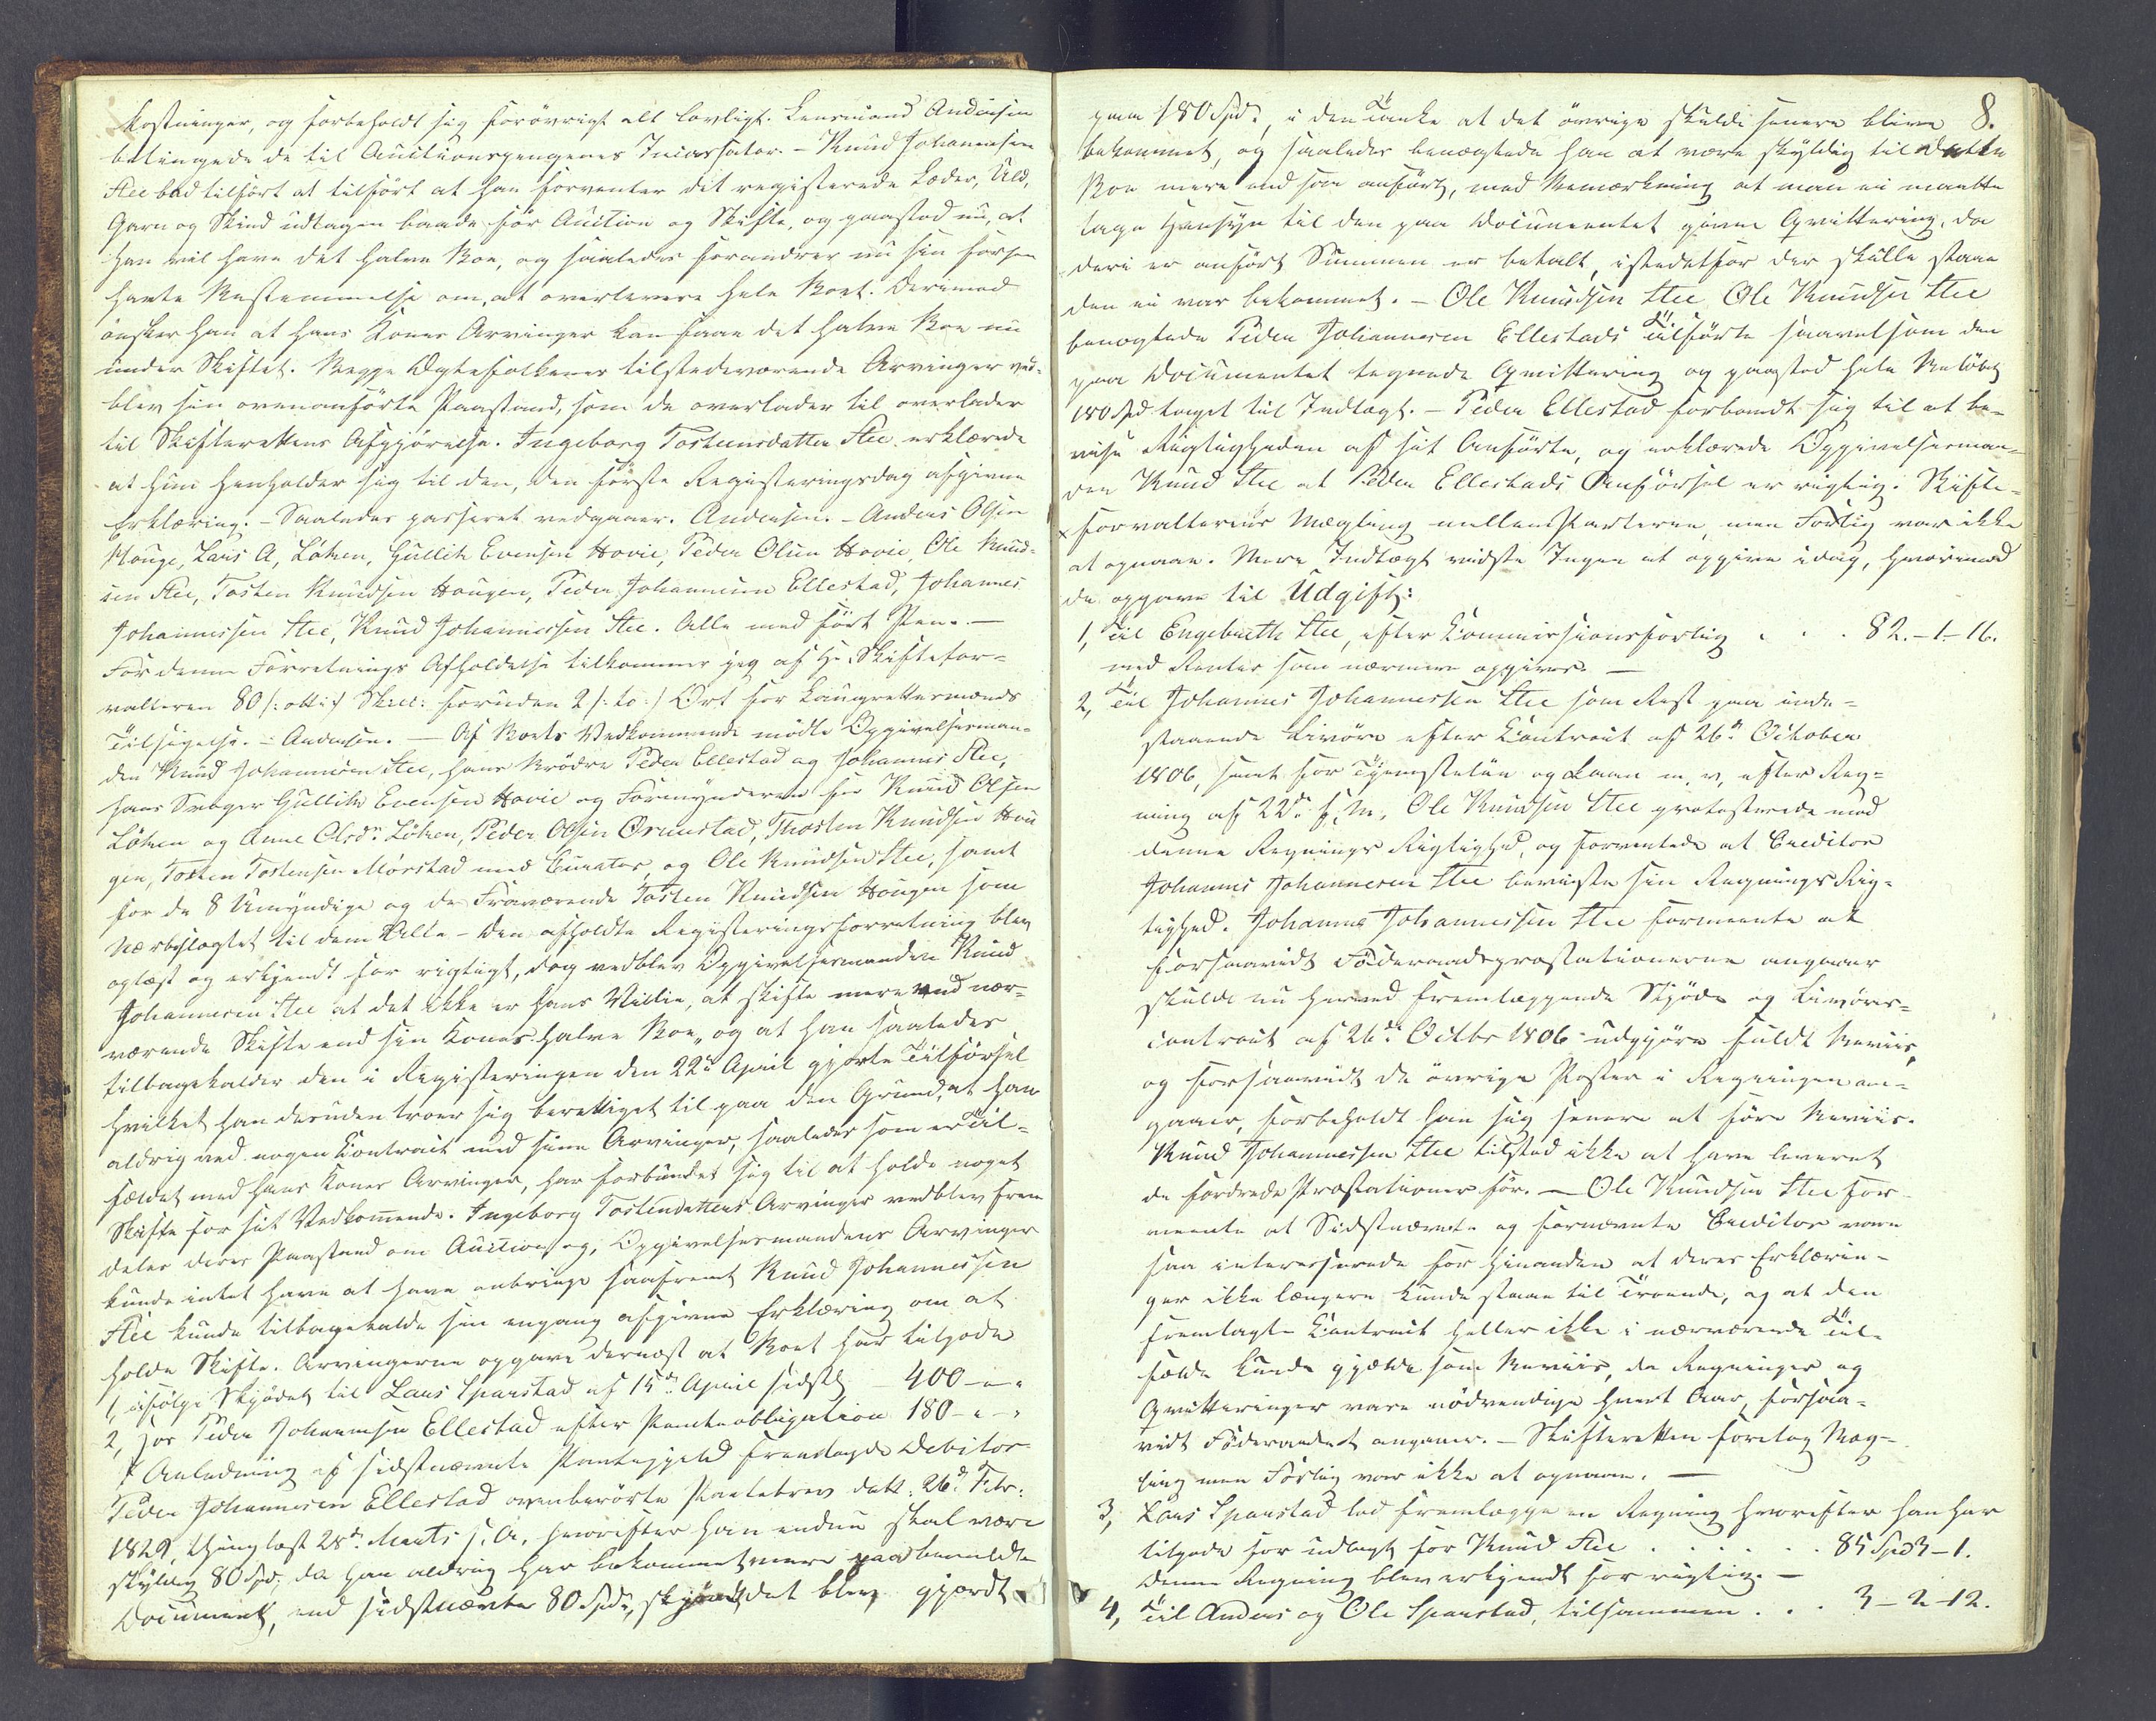 kostninger, og forbeholdt sig forøvrigt alt lovligt. Lensmand Andersen
betingede de til Auctionspengenes Incassator. – Knud Johannesen
Stee bad tilført at tilført at han forventer det registerede Læder, Uld,
Garn og Skind udtagen baade før Auction og Skifte, og paastod nu, at
han vil have det halve Boe, og saaledes forandrer nu sin forhen
havte Bestemmelse om, at overlevere hele Boet. Derimod
ønsker han at hans Kones Arvinger kan faae det halve Boe nu
under Skiftet. Begge Ægtefolkenes tilstedeværende Arvinger ved-
blev sin ovenanførte Paastand, som de overlader til overlader
til Skifterettens Afgjørelse. Ingeborg Tostensdatter Stee erklærede
at hun henholder sig til den, den første Registeringsdag afgivne
Erklæring. – Saaledes passeret vedgaaer. Andersen. – Anders Olsen
Houge, Lars A, Løken, Gullik Evensen Hovie, Peder Olsen Hovie, Ole Knud-
sen Stee, Tosten Knudsen Haugen, Peder Johannesen Ellestad, Johannes
Johannessen Stee, Knud Johannessen Stee. Alle med ført Pen. –
For denne Forretnings Afholdelse tilkommer jeg af Hr. Skiftefor-
valteren 80 /: otti :/ Skill: foruden 2 /: to :/ Ort for Laugrettesmænds
Tilsigelse. – Andersen. – Af Boets Vedkommende mødte Opgivelsesman-
den Knud Johannesen Stee, hans Brødre Peder Ellestad og Johannes Stee,
hans Svoger Gullik Evensen Hovie og Formynderen for Knud Olsen
Løken og Anne Olsdr. Løken, Peder Olsen Ormestad, Thosten Knudsen Hou
gen, Tosten Tostensen Mørstad med Curator, og Ole Knudsen Stee, samt
for de 8 Umyndige og de Fraværende Tosten Knudsen Hougen som
Nærbeslægtet til dem Alle. – Den afholdte Registeringsforretning blev
oplæst og erkjendt for rigtigt, dog vedblev Opgivelsesmanden Knud
Johannesen Stee at det ikke er hans Villie, at skifte mere ved nær-
værende Skifte end sin Kones halve Boe, og at han saaledes
tilbagekalder den i Registeringen den 22de April gjorte Tilførsel
hvilket han desuden troer sig berettiget til paa den Grund, at han
aldrig ved nogen Contract med sine Arvinger, saaledes som er Til-
fældet med hans Kones Arvinger, har forbundet sig til at holde noget
Skifte for sit Vedkommende. Ingeborg Tostendatters Arvinger vedblev frem
deles deres Paastand om Auction og, Opgivelsesmandens Arvinger
kunde intet have at have anbringe saafremt Knud Johannessen
Stee kunde tilbagekalde sin engang afgivne Erklæring om at
holde Skifte. Arvingerne opgave dernæst at Boet har tilgode
1, ifølge Skjødet til Lars Sparstad af 15de April sidstl. – 400 – " – "
2, hos Peder Johannesen Ellestad efter Panteobligation 180 – " – "
I Anledning af sidstnævnte Pantegjeld fremlagde Debitor
Peder Johannesen Ellestad ovenberørte Pantebrev datt: 26de Febr:
1829, thinglæst 28de Marts s. A. hvorefter han endnu skal være
skyldig 80 Spd, da han aldrig har bekommet mere paa bemeldte
Document, end sidstnævnte 80 Spd, skjøndt det blev gjordt
8.
paa 180 Spd., i den Tanke at det øvrige skulde senere blive
bekommet, og saaledes benægtede han at være skyldig til dette
Boe mere end som anført, med Bemærkning at man ei maatte
tage Hensyn til den paa Documentet givne Qvittering, da
deri er anført Summen er betalt, istedetfor der skulle staae
den ei var bekommet. – Ole Knudsen Stee Ole Knudsen Stee
benægtede Peder Johannesen Ellestads Tilførte saavelsom den
paa Documentet tegnede Qvittering og paastod hele Beløbet
180 Spd taget til Indtægt. – Peder Ellestad forbandt sig til at be-
vise Rigtigheden af sit Anførte, og erklærede Opgivelsesman-
den Knud Stee at Peder Ellestads Anførsel er rigtig. Skifte-
forvalteren Mægling mellem Parterne, men Forlig var ikke
at opnaae. Mere Indtægt vidste Ingen at opgive idag, hvorimod
de opgave til Udgift:
1, Til Engebreth Stee, efter Commissionsforlig . . . 82. – 1 – 16.
med Renter som nærmere opgives. –
2, Til Johannes Johannessen Stee som Rest paa inde-
staaende Livøre efter Contract af 26de October
1806, samt for Tjenesteløn og Laan m. v, efter Reg-
ning af 22de f. M. Ole Knudsen Stee protesterede mod
denne Regnings Rigtighed, og forventede at Creditor
Johannes Johannesen Stee beviste sin Regnings Rig-
tighed. Johannes Johannessen Stee formeente at
forsaavidt Føderaadsprestationerne angaaer
skulde nu herved fremlæggende Skjøde og Livøres-
contract af 26de Octbr 1806 udgjøre fuldt Beviis,
og forsaavidt de øvrige Poster i Regningen an-
gaaer, forbeholdt han sig senere at føre Beviis.
Knud Johannessen Stee tilstod ikke at have leveret
de fordrede Præstationer før. – Ole Knudsen Stee for-
meente at Sidstnævnte og fornævnte Creditor vare
saa interesserede for hinanden at deres Erklærin-
ger ikke længere kunde staae til Troende, og at den
fremlagte Contract heller ikke i nærværende Til-
fælde kunde gjælde som Beviis, da Regninger og
Qvitteringer vare nødvendige hvert Aar, forsaa-
vidt Føderaadet angaaer. – Skifteretten foretog Mæg-
ling men Forlig var ikke at opnaae. –
3, Lars Sparstad lod fremlægge en Regning hvorefter han har
tilgode for udlagt for Knud Stee . . . . . . 85 Spd 3 – 1.
Denne Regning blev erkjendt for rigtig. –
4, Til Anders og Ole Sparstad, tilsammen . . . 3 – 2 – 12.